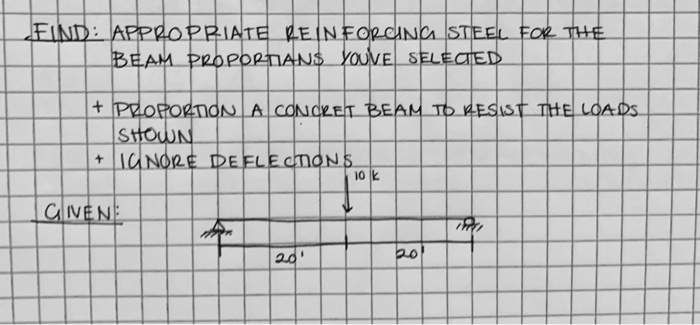 FIND: APPROPRIATE REINFORCING STEEL FOR THE
BEAM PROPORTIANS YOU'VE SELECTED
+ PROPORTION A CONCRET BEAM TO RESIST THE LOADS
SHOWN
+ IGNORE DEFLECTIONS
10 k
GIVEN:
20' 20'